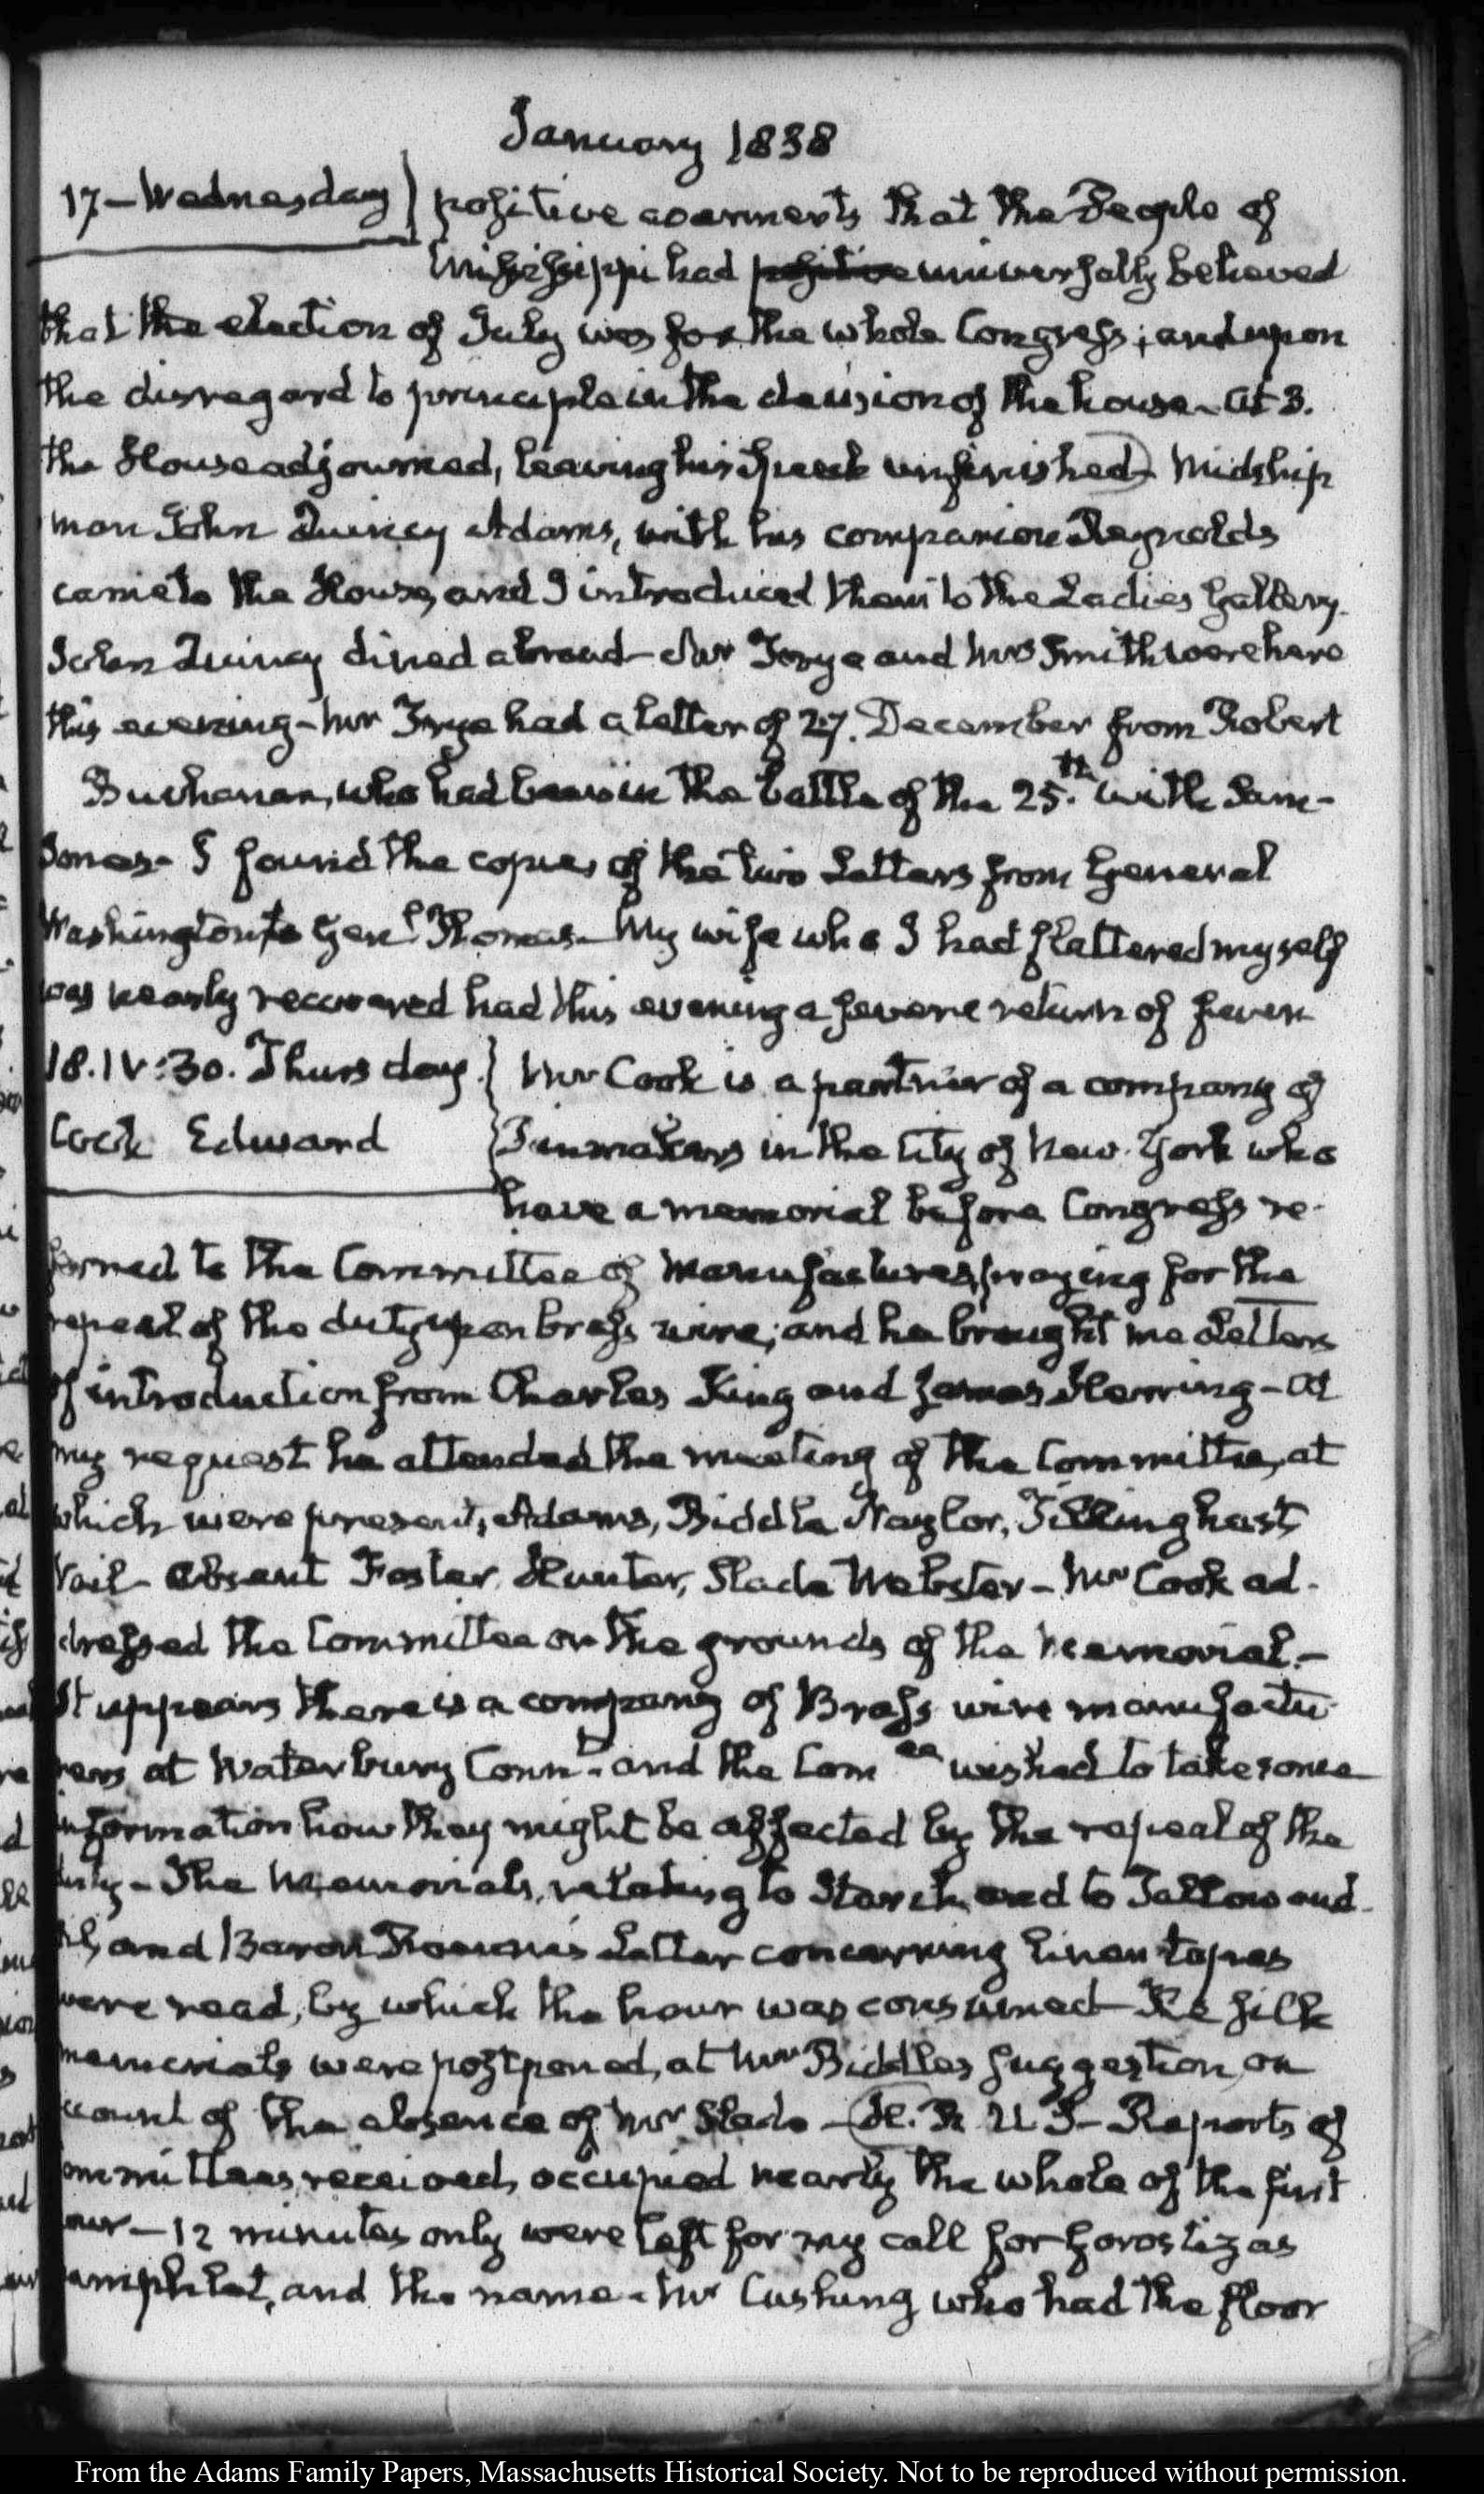 January 1838
17 – Wednesday
positive averments that the People of
Mississippi had positive universally believed
that the election of July was for the whole Congress; and upon
the disregard to principle in the decision of the house – At 3.
the House adjourned, leaving his Speech unfinished – Midship
man John Quincy Adams, with his companion Reynolds
came to the House, and I introduced them to the Ladies Gallery.
John Quincy dined abroad – Mr Frye and Mrs Smith were here
this evening – Mr Frye had a letter of 27. December from Robert
Buchanan, who had been in the battle of the 25.th with Sem-
inoles – I found the copies of the two Letters from General
Washington to Genl. Thomas – My wife who I had flattered myself
was nearly recovered had this evening a severe return of fever
18. IV:30. Thursday.
Cook Edward
Mr Cook is a partner of a company of
Pinmakers in the City of New-York who
have a memorial before Congress re-
ferred to the Committee of Manufactures, praying for the
repeal of the duty upon brass wire; and he brought me Letters
of introduction from Charles King and James Herring – At
my request he attended the meeting of the Committee, at
which were present, Adams, Biddle Naylor, Tillinghast
Vail – Absent Foster, Hunter, Slade Webster – Mr Cook ad-
dressed the Committee on the grounds of the Memorial. –
It appears there is a company of Brass wire manufactu-
rers at Waterbury Connt. and the Comee wished to take some
information how they might be affected by the repeal of the
duty – The Memorials, relating to Starch, and to Tallow and
oil, and Baron Roenne's Letter concerning linen tapes
were read, by which the hour was consumed – The silk
memorials were postponed, at Mr Biddle's suggestion, on
account of the absence of Mr Slade – H. R. U. S – Reports of
committees received, occupied nearly the whole of the first
hour – 12 minutes only were left for my call for Gorostizas
pamphlet, and the name – Mr Cushing who had the floor
From the Adams Family Papers, Massachusetts Historical Society. Not to be reproduced without permission.